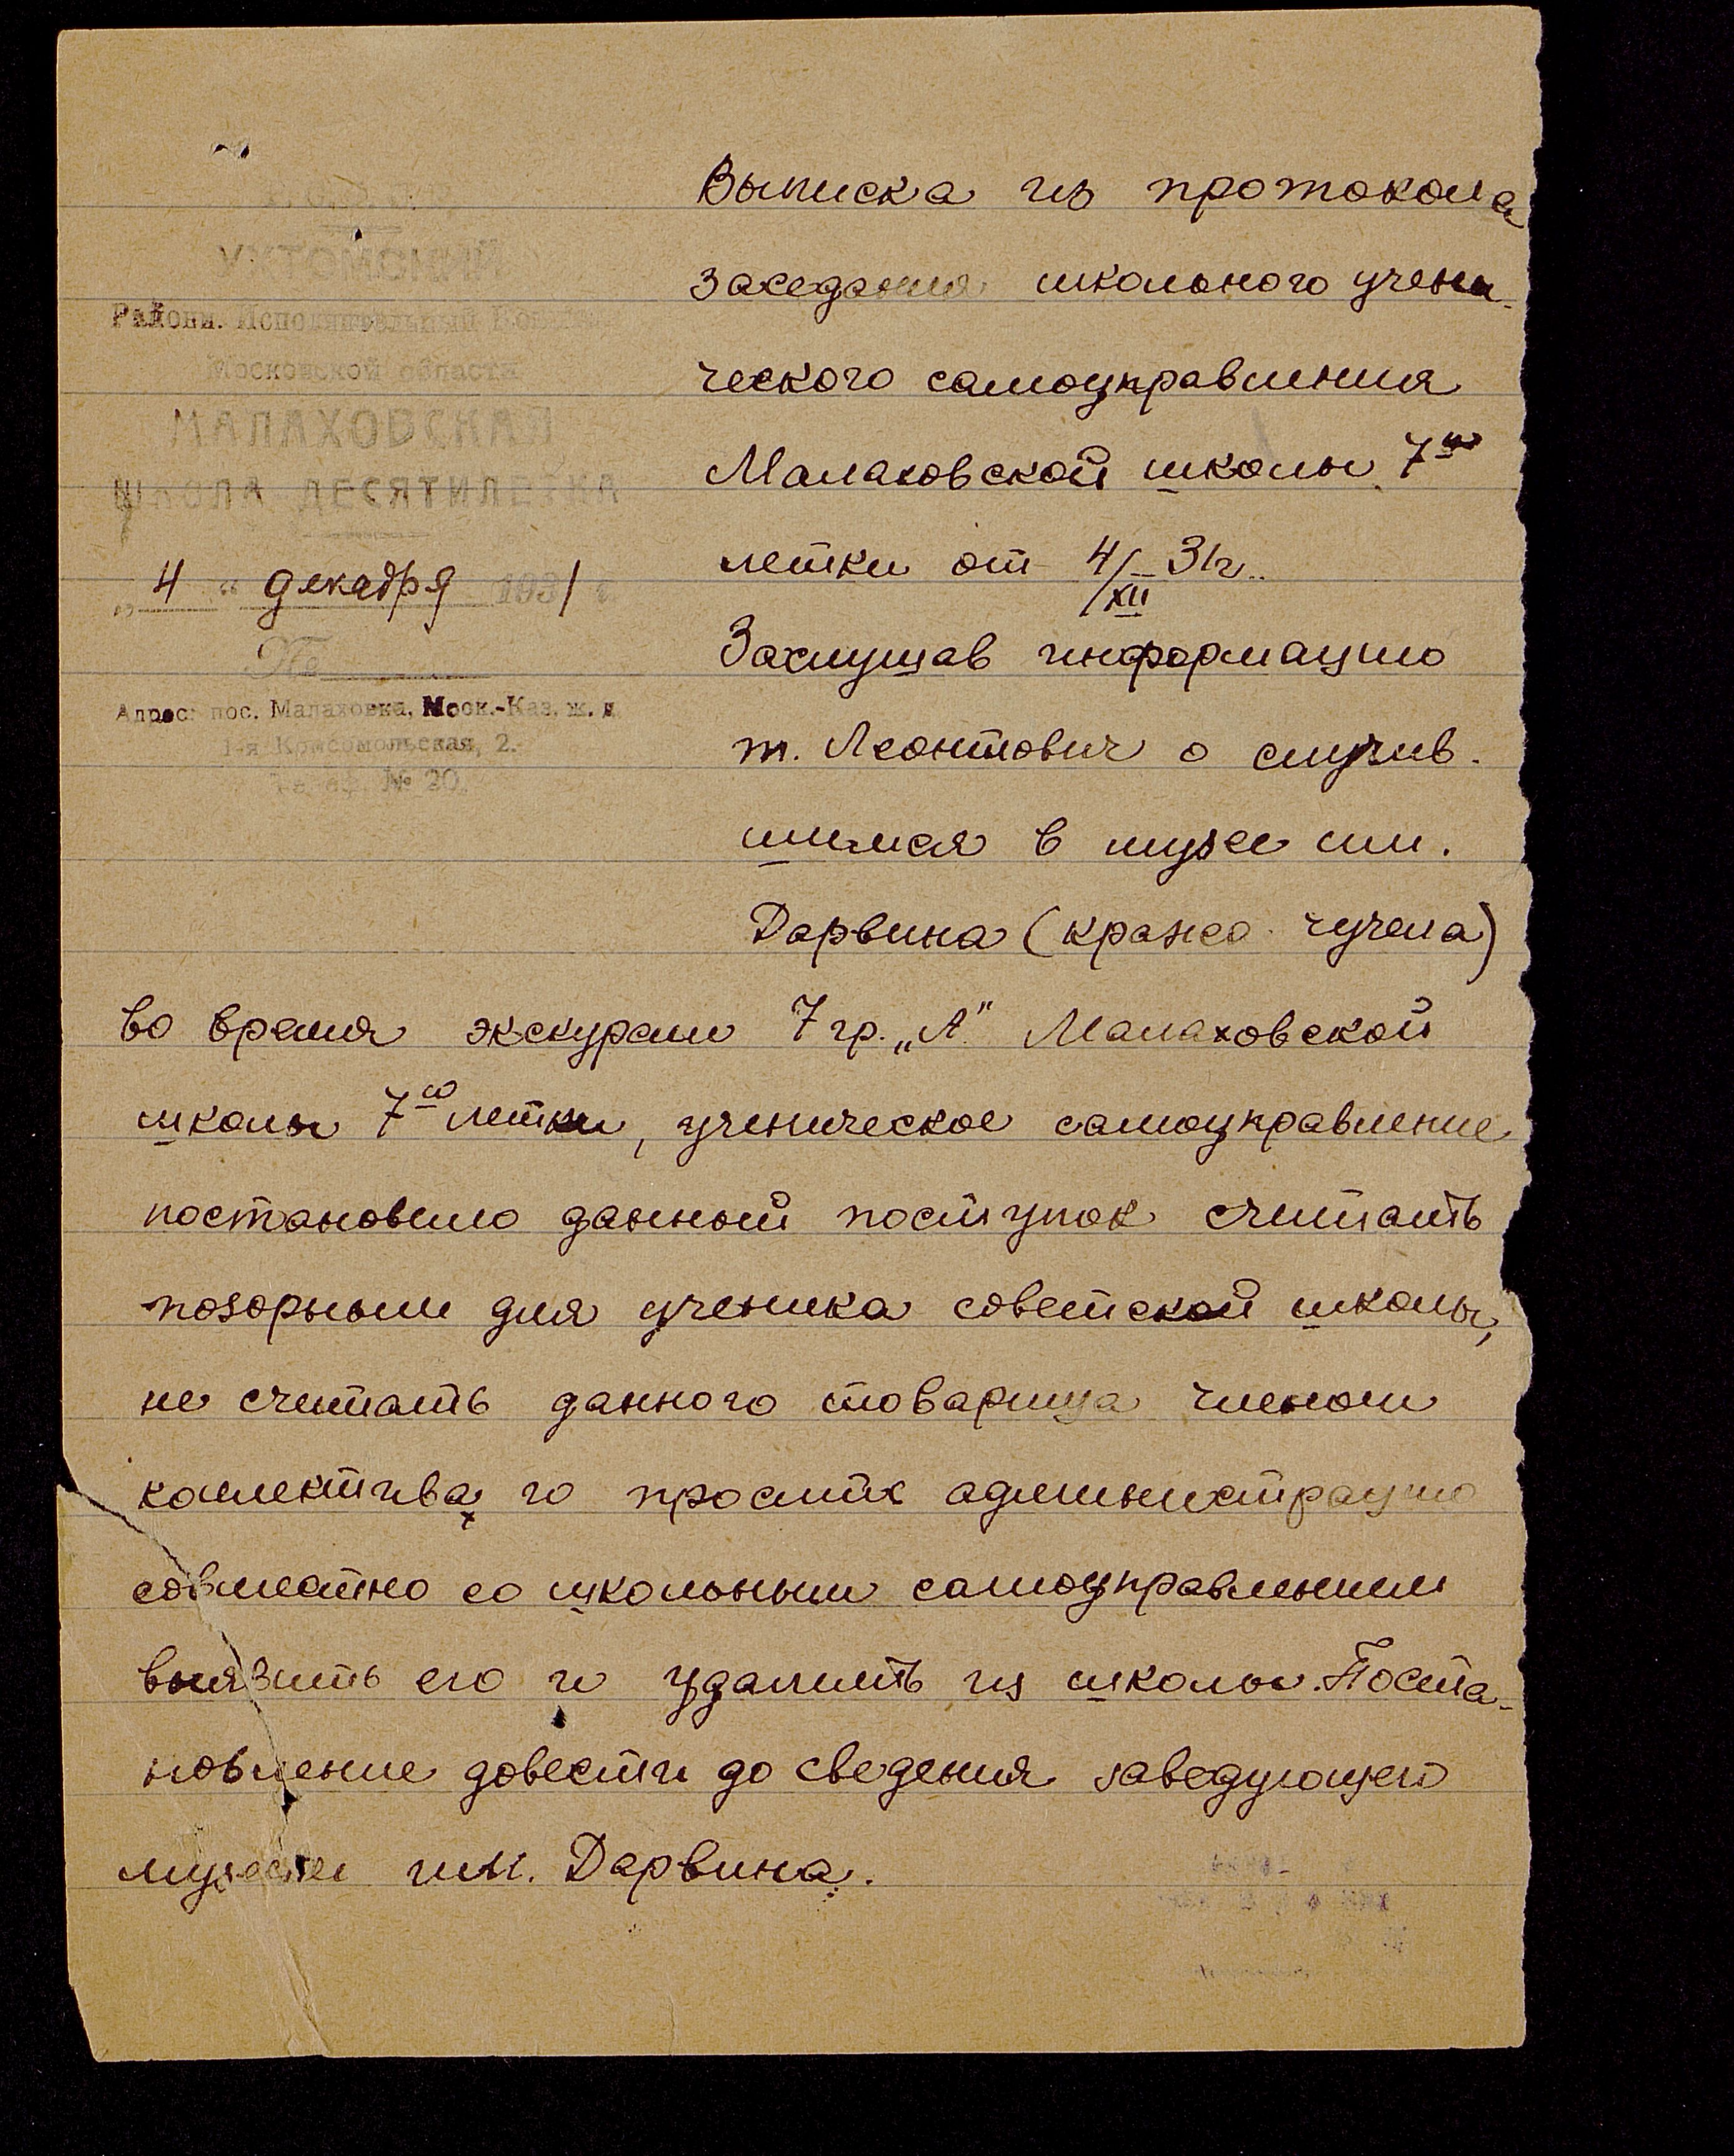 УХТОМСКИЙ
Районн. Исполнительный
Московской области
МАЛАХОВСКАЯ
ШКОЛА ДЕСЯТИЛЕТКА
„ 4 “ декабря 1931 г
№
Адрес: пос. Малаховка, Моск.-Каз. ж. д.
1-я Комсомольская, 2.
№ 20.
Выписка из протокола
заседания школьного учени-
ческого самоуправления
Малаховской школы 7ми
летки от 4/XII 31г.
Заслушав информацию
т. Леонтович о случив-
шимся в музее им.
Дарвина (кража чучела)
во время экскурсии 7 гр. „А" Малаховской
школы 7ми летки, ученическое самоуправление
постановило данный поступок считать
позорным для ученика советской школы,
не считать данного товарища членом
коллектива и просить администрацию
совместно со школьным самоуправлением
выявить его и удалить из школы. Поста-
новление довести до сведения заведующего
музеем им. Дарвина.